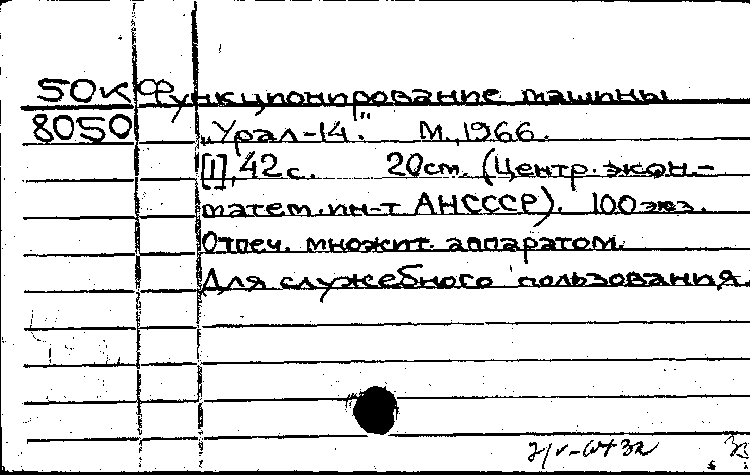 50к Функционирование машины
8050 „Урал-14." М.,1966.
[1],42 с. 20см. (Центр.экон.-
матем.ин-т АНСССР). 100экз.
Отпеч. множит. аппаратом.
Для служебного пользования.